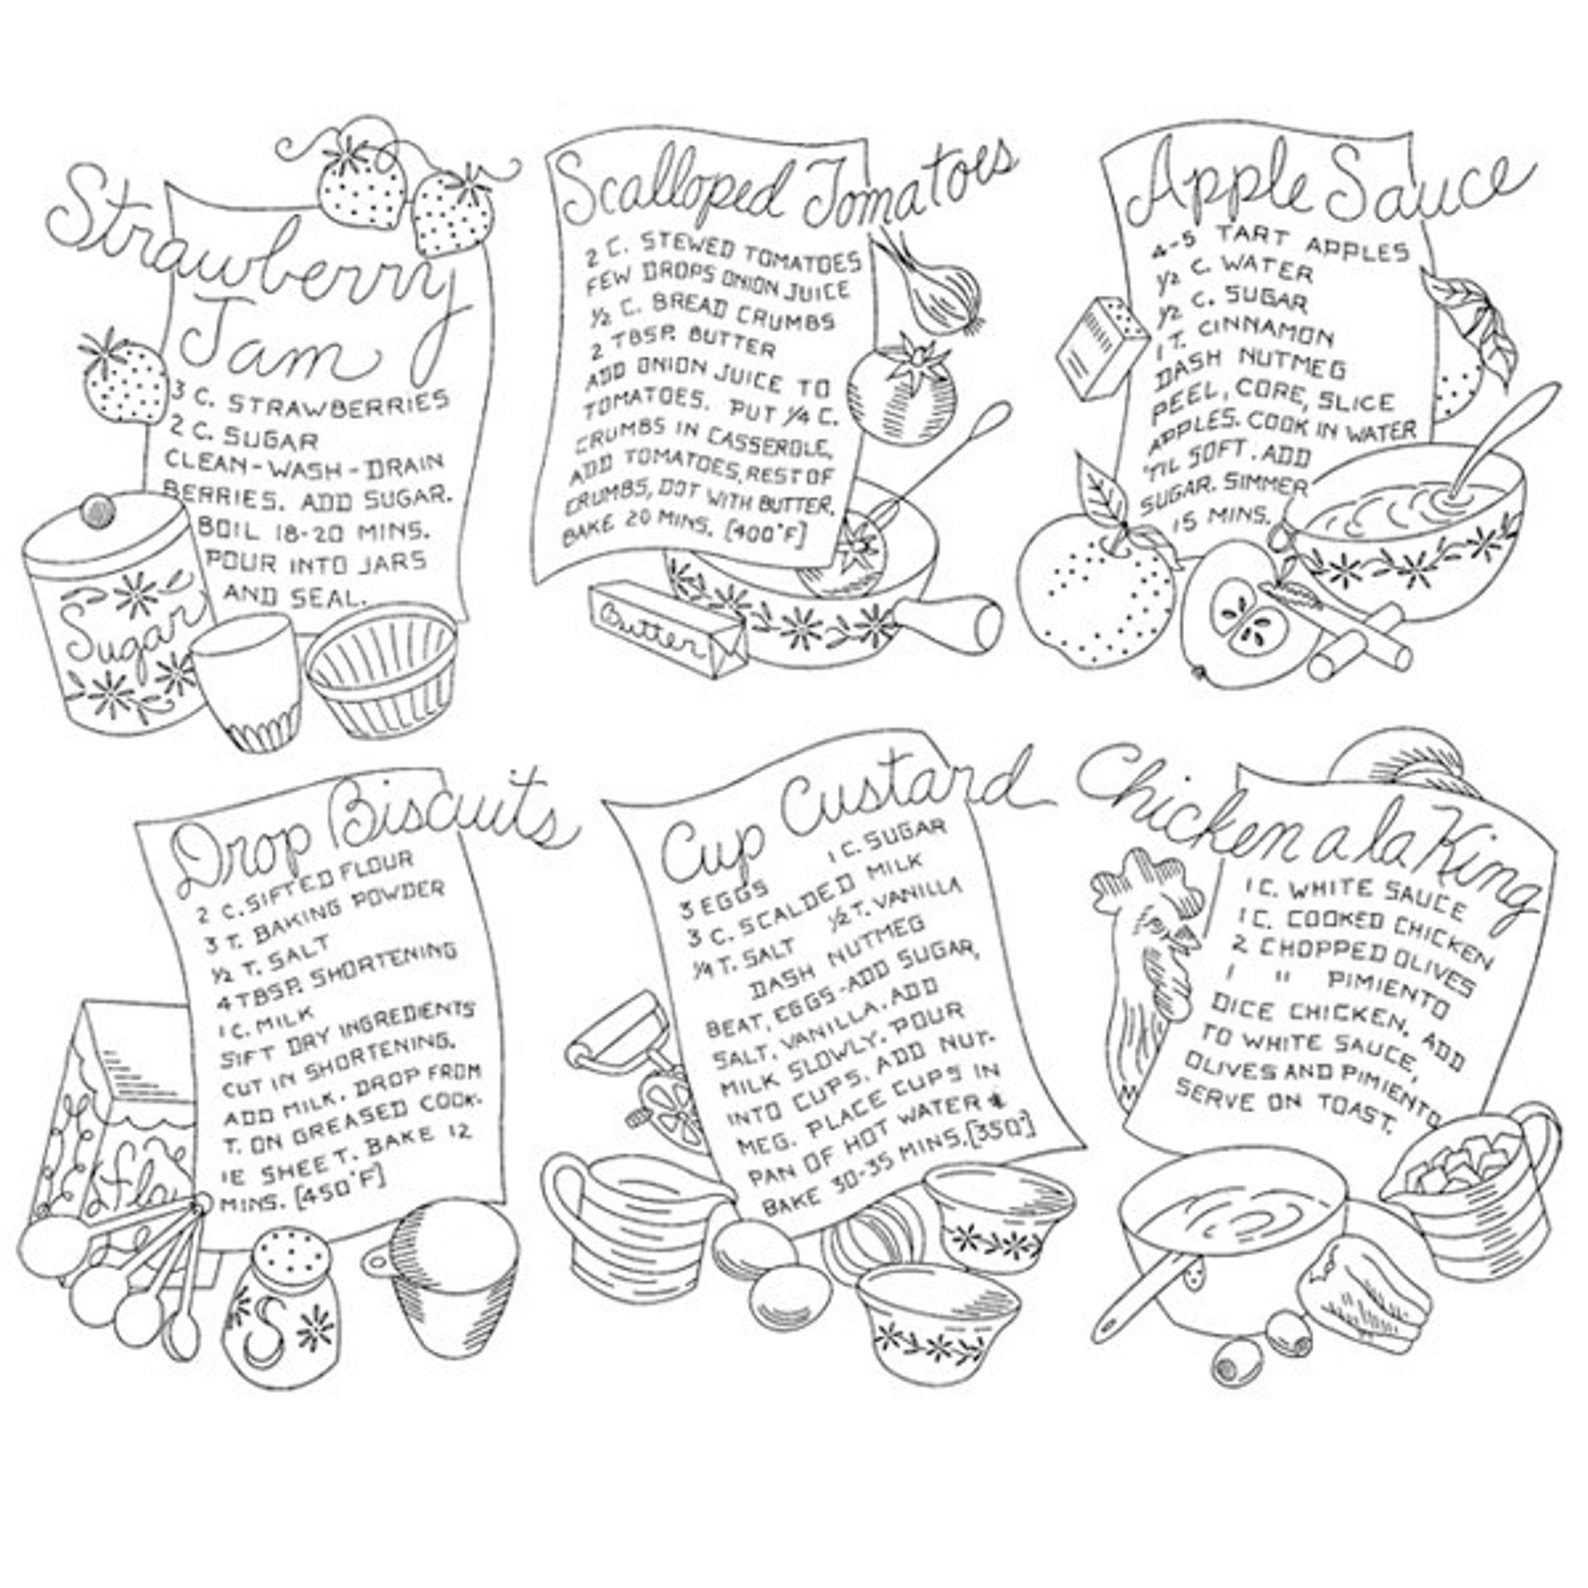 Strawberry
Jam
3 C. STRAWBERRIES
2 C. SUGAR
CLEAN-WASH-DRAIN
BERRIES. ADD SUGAR.
BOIL 18-20 MINS.
POUR INTO JARS
AND SEAL.
Sugar
Scalloped Tomatoes
2 C. STEWED TOMATOES
FEW DROPS ONION JUICE
½ C. BREAD CRUMBS
2 TBSP. BUTTER
ADD ONION JUICE TO
TOMATOES. PUT ¼ C.
CRUMBS IN CASSEROLE,
ADD TOMATOES, REST OF
CRUMBS, DOT WITH BUTTER.
BAKE 20 MINS. [400°F]
Butter
Apple Sauce
4-5 TART APPLES
½ C. WATER
½ C. SUGAR
1 T. CINNAMON
DASH NUTMEG
PEEL, CORE, SLICE
APPLES. COOK IN WATER
'TIL SOFT. ADD
SUGAR. SIMMER
15 MINS.
Drop Biscuits
2 C. SIFTED FLOUR
3 T. BAKING POWDER
½ T. SALT
4 TBSP. SHORTENING
1 C. MILK
SIFT DRY INGREDIENTS
CUT IN SHORTENING.
ADD MILK. DROP FROM
T. ON GREASED COOK-
IE SHEET. BAKE 12
MINS. [450°F]
flou
S
Cup Custard
3 EGGS 1 C. SUGAR
3 C. SCALDED MILK
¼ T. SALT ½ T. VANILLA
DASH NUTMEG
BEAT, EGGS-ADD SUGAR,
SALT, VANILLA. ADD
MILK SLOWLY. POUR
INTO CUPS. ADD NUT-
MEG. PLACE CUPS IN
PAN OF HOT WATER &
BAKE 30-35 MINS. [350°]
Chicken a la King
1 C. WHITE SAUCE
1 C. COOKED CHICKEN
2 CHOPPED OLIVES
1 " PIMIENTO
DICE CHICKEN, ADD
TO WHITE SAUCE,
OLIVES AND PIMIENTO
SERVE ON TOAST.